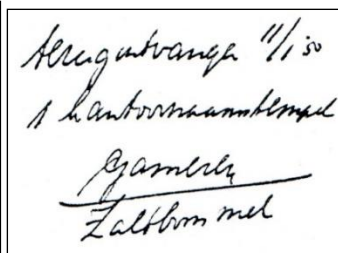 terugontvangen 11/1 '50
1 kantoornaamstempel
Gameren
Zaltbommel